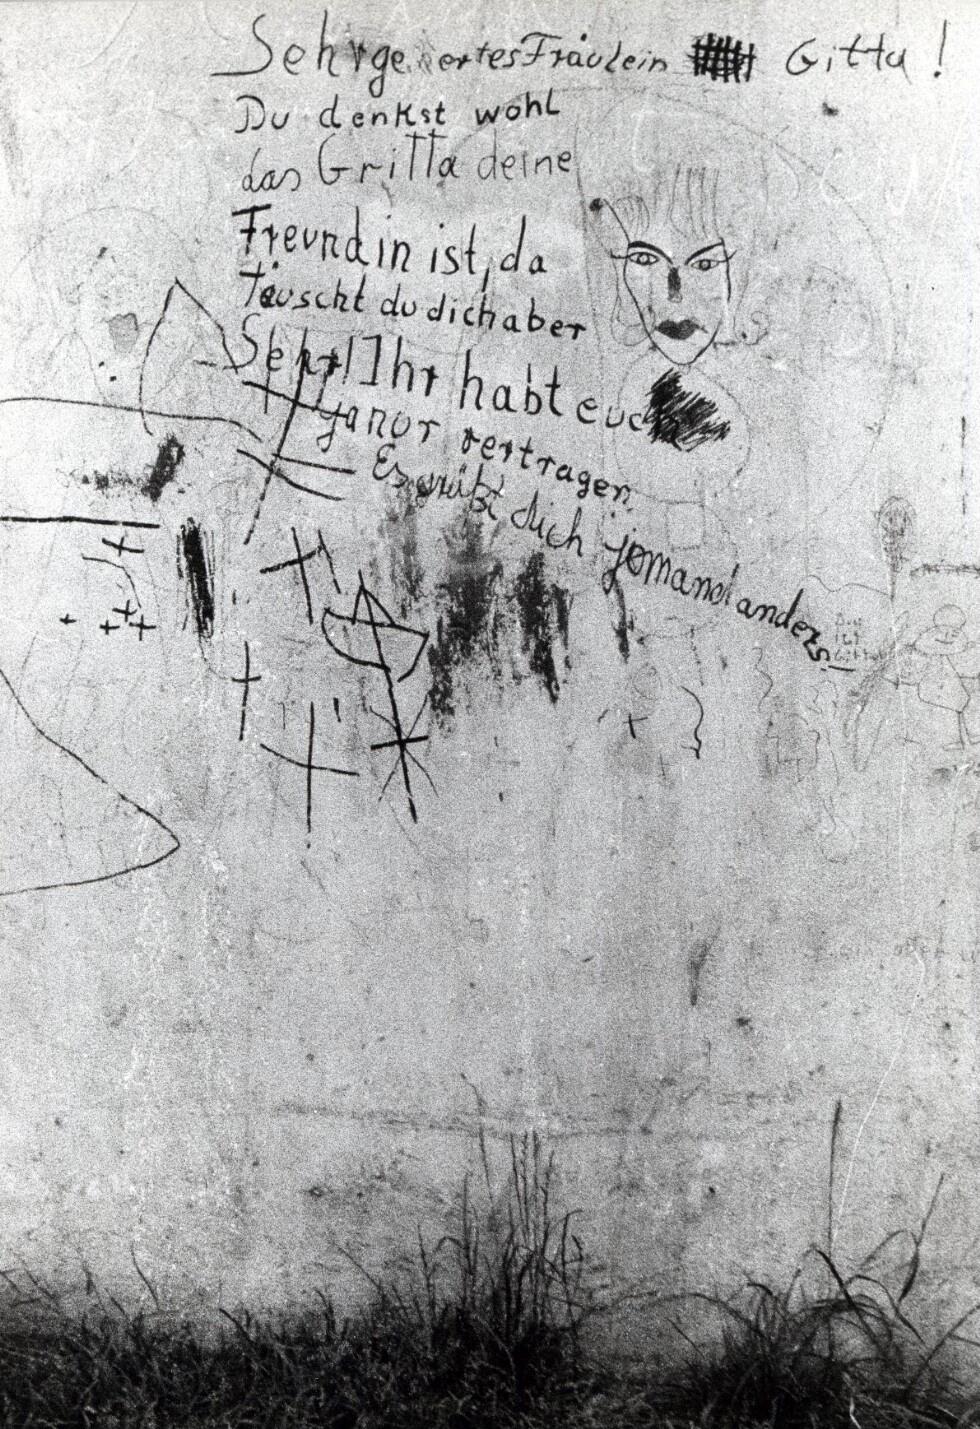 Sehrgeertes Fräulein Gitta!
Du denkst wohl
das Gritta deine
Freundin ist, da
täuscht du dich aber
Sehr! Ihr habt euch
ja nur vertragen
Es grüßt dich jemand anders!